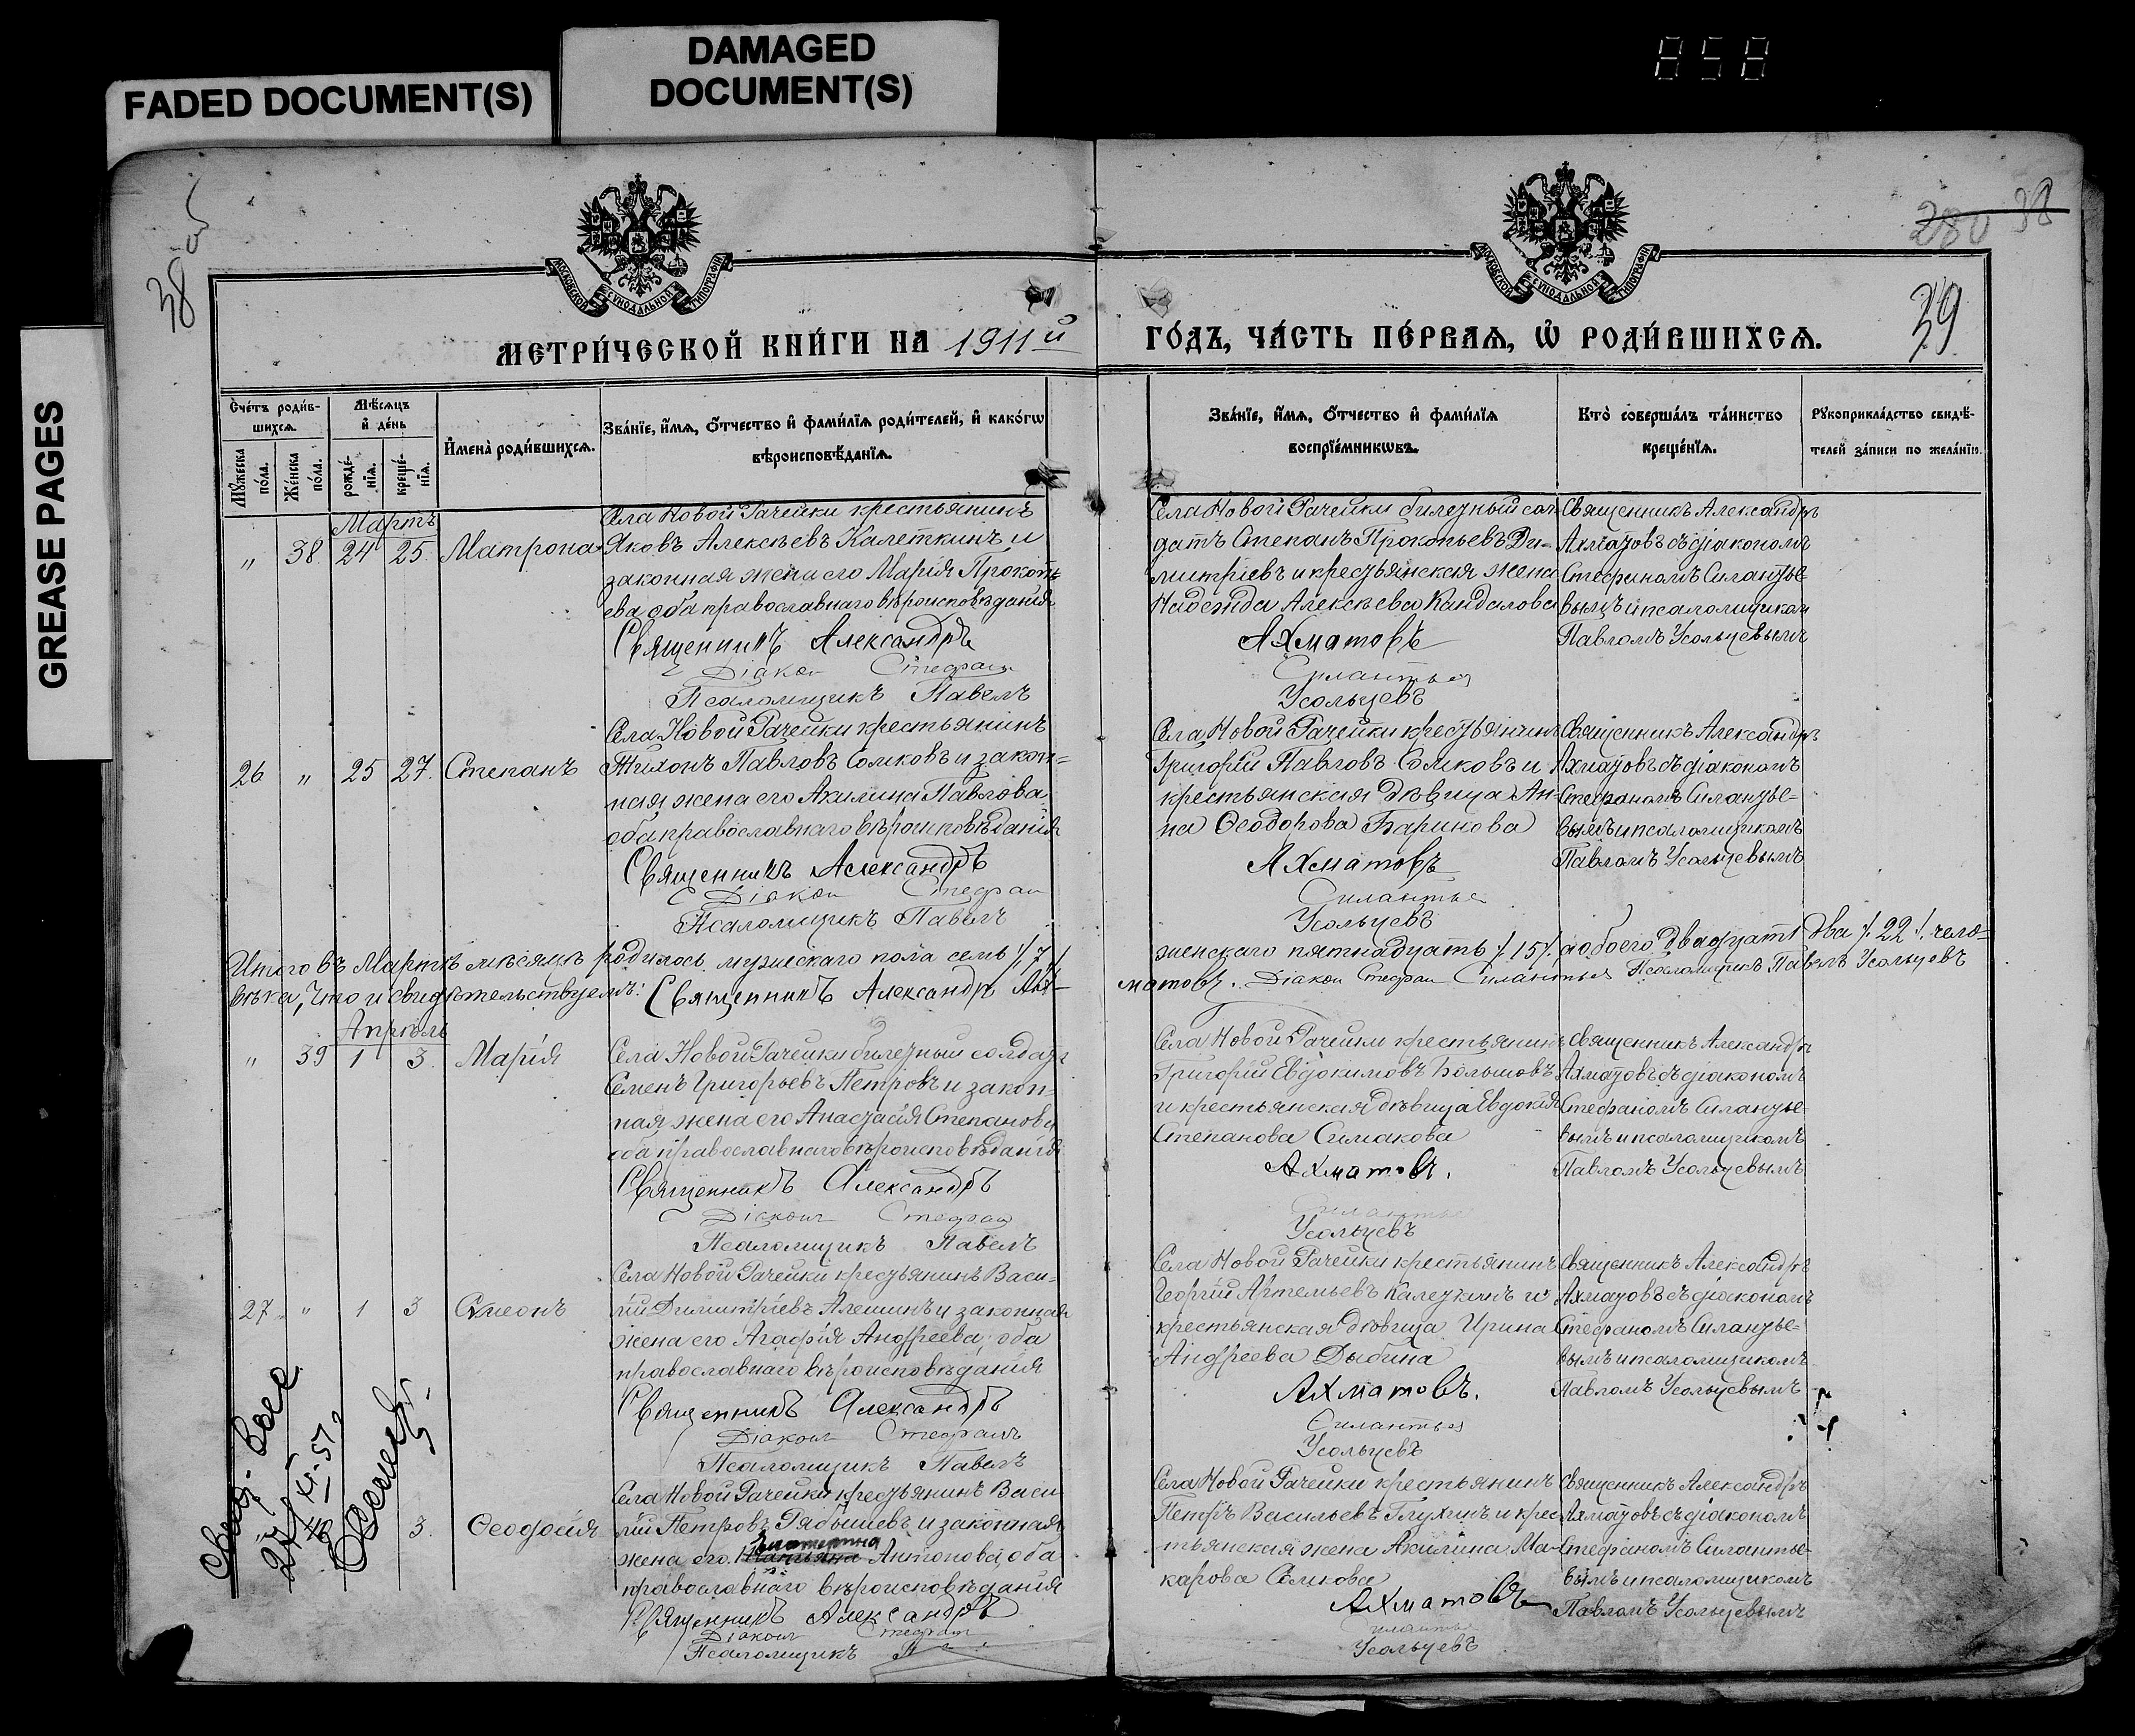 FADED DOCUMENT(S)
DAMAGED
DOCUMENT(S)
858
GREASE PAGES
38 об
280 38
39
МОСКОВСКОЙ СУНОДАЛЬНОЙ ТИПОГРАФІИ
МОСКОВСКОЙ СУНОДАЛЬНОЙ ТИПОГРАФІИ
МЕТРИ́ЧЕСКОЙ КНИ́ГИ НА 1911й
ГО́ДЪ, ЧА́СТЬ ПЕ́РВАѦ, Ѡ҆ РОДИ́ВШИХСѦ.
Сче́тъ роди́в-
шихсѧ.
Мѣ́сѧцъ
и҆ де́нь
Мꙋ́жеска
по́ла.
Же́нска
по́ла.
рожде́-
нїѧ.
креще́-
нїѧ.
И҆мена̀ роди́вшихсѧ.
Зва́нїе, и҆́мѧ, ѻ҆́тчество и҆ фами́лїѧ роди́телей, и҆ како́гѡ
вѣроисповѣ́данїѧ.
Зва́нїе, и҆́мѧ, ѻ҆́тчество и҆ фами́лїѧ
воспрїе́мникѡвъ.
Кто̀ соверша́лъ та́инство
креще́нїѧ.
Рꙋкоприкла́дство свидѣ́-
телей за́писи по жела́нїю.
Мартъ
„ 38 24 25. Матрона
Села Новой Рачейки крестьянинъ
Яковъ Алексѣевъ Калеткинъ и
законная жена его Марія Прокопь
ева, оба православнаго вѣроисповѣданія
Священникъ Александръ
Діакон Стефан
Псаломщикъ Павелъ
Села Новой Рачейки билетный сол
датъ Степанъ Прокопьевъ Ди-
митріевъ и крестьянская жена
Надежда Алексѣева Кандалова
Ахматовъ
Силантьев
Усольцевъ
Священникъ Александръ
Ахматовъ съ діакономъ
Стефаномъ Силантье-
вымъ и псаломщиком
Павломъ Усольцевымъ
26 „ 25 27. Степанъ
Села Новой Рачейки крестьянинъ
Тихонъ Павловъ Сомковъ и закон-
ная жена его Акилина Павлова,
оба православнаго вѣроисповѣданія
Священникъ Александръ
Діакон Стефан
Псаломщикъ Павелъ
Села Новой Рачейки крестьянинъ
Григорій Павловъ Сомковъ и
крестьянская дѣвица Ан-
на Ѳеодорова Баринова
Ахматовъ
Силантьев
Усольцевъ
Священникъ Александръ
Ахматовъ съ діакономъ
Стефаномъ Силантье-
вымъ и псаломщикомъ
Павломъ Усольцевымъ
Итого въ Мартѣ мѣсяцѣ родилось мужескаго пола семь /.7./
женскаго пятнадцать /.15/. а обоего двадцать два /.22./. чело-
вѣка, что и свидѣтельствуемъ: Священникъ Александръ Ах-
матовъ. Діакон Стефан Силантьев Псаломщикъ Павелъ Усольцевъ
Апрѣль
„ 39 1 3. Марія
Села Новой Рачейки билетный солдатъ
Семенъ Григорьевъ Петровъ и закон-
ная жена его Анастасія Степанова
оба православнаго вѣроисповѣданія
Священникъ Александръ
Діакон Стефан
Псаломщикъ Павелъ
Села Новой Рачейки крестьянинъ
Григорій Евдокимовъ Большовъ
и крестьянская дѣвица Евдокія
Степанова Симакова
Ахматовъ.
Силантьев
Усольцевъ
Священникъ Александръ
Ахматовъ съ діакономъ
Стефаномъ Силантье-
вымъ и псаломщикомъ
Павломъ Усольцевымъ
27. „ 1 3 Симеонъ
Села Новой Рачейки крестьянинъ Васи-
лій Димитріевъ Алешинъ и законная
жена его Агафія Андреева, оба
православнаго вѣроисповѣданія
Священникъ Александръ
Діакон Стефанъ
Псаломщикъ Павелъ
Села Новой Рачейки крестьянинъ
Георгій Артемьевъ Калеткинъ и
крестьянская дѣвица Ирина
Андреева Дыбина
Ахматовъ.
Силантьев
Усольцевъ
Священникъ Александръ
Ахматовъ съ діакономъ
Стефаномъ Силантье-
вымъ и псаломщикомъ
Павломъ Усольцевымъ
3. Ѳеодосія
Села Новой Рачейки крестьянинъ Васи
лій Петровъ Рябышевъ и законная
Екатерина
жена его Антонова, оба
православнаго вѣроисповѣданія
Священникъ Александръ
Діакон Стефан
Псаломщикъ
Села Новой Рачейки крестьянинъ
Петръ Васильевъ Глухинъ и крес
тьянская жена Акилина Ма-
карова Сомкова
Ахматовъ
Усольцевъ
Священникъ Александръ
Ахматовъ съ діакономъ
Стефаномъ Силантье-
вымъ и псаломщикомъ
Павломъ Усольцевымъ